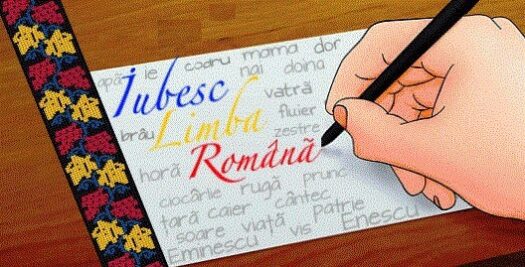 apă ie codru mama dor
nai doina
Iubesc vatră
brâu Limba fluier
zestre
horă Română
ciocârlie rugă prunc
țară caier cântec
soare viață patrie
Eminescu vis Enescu